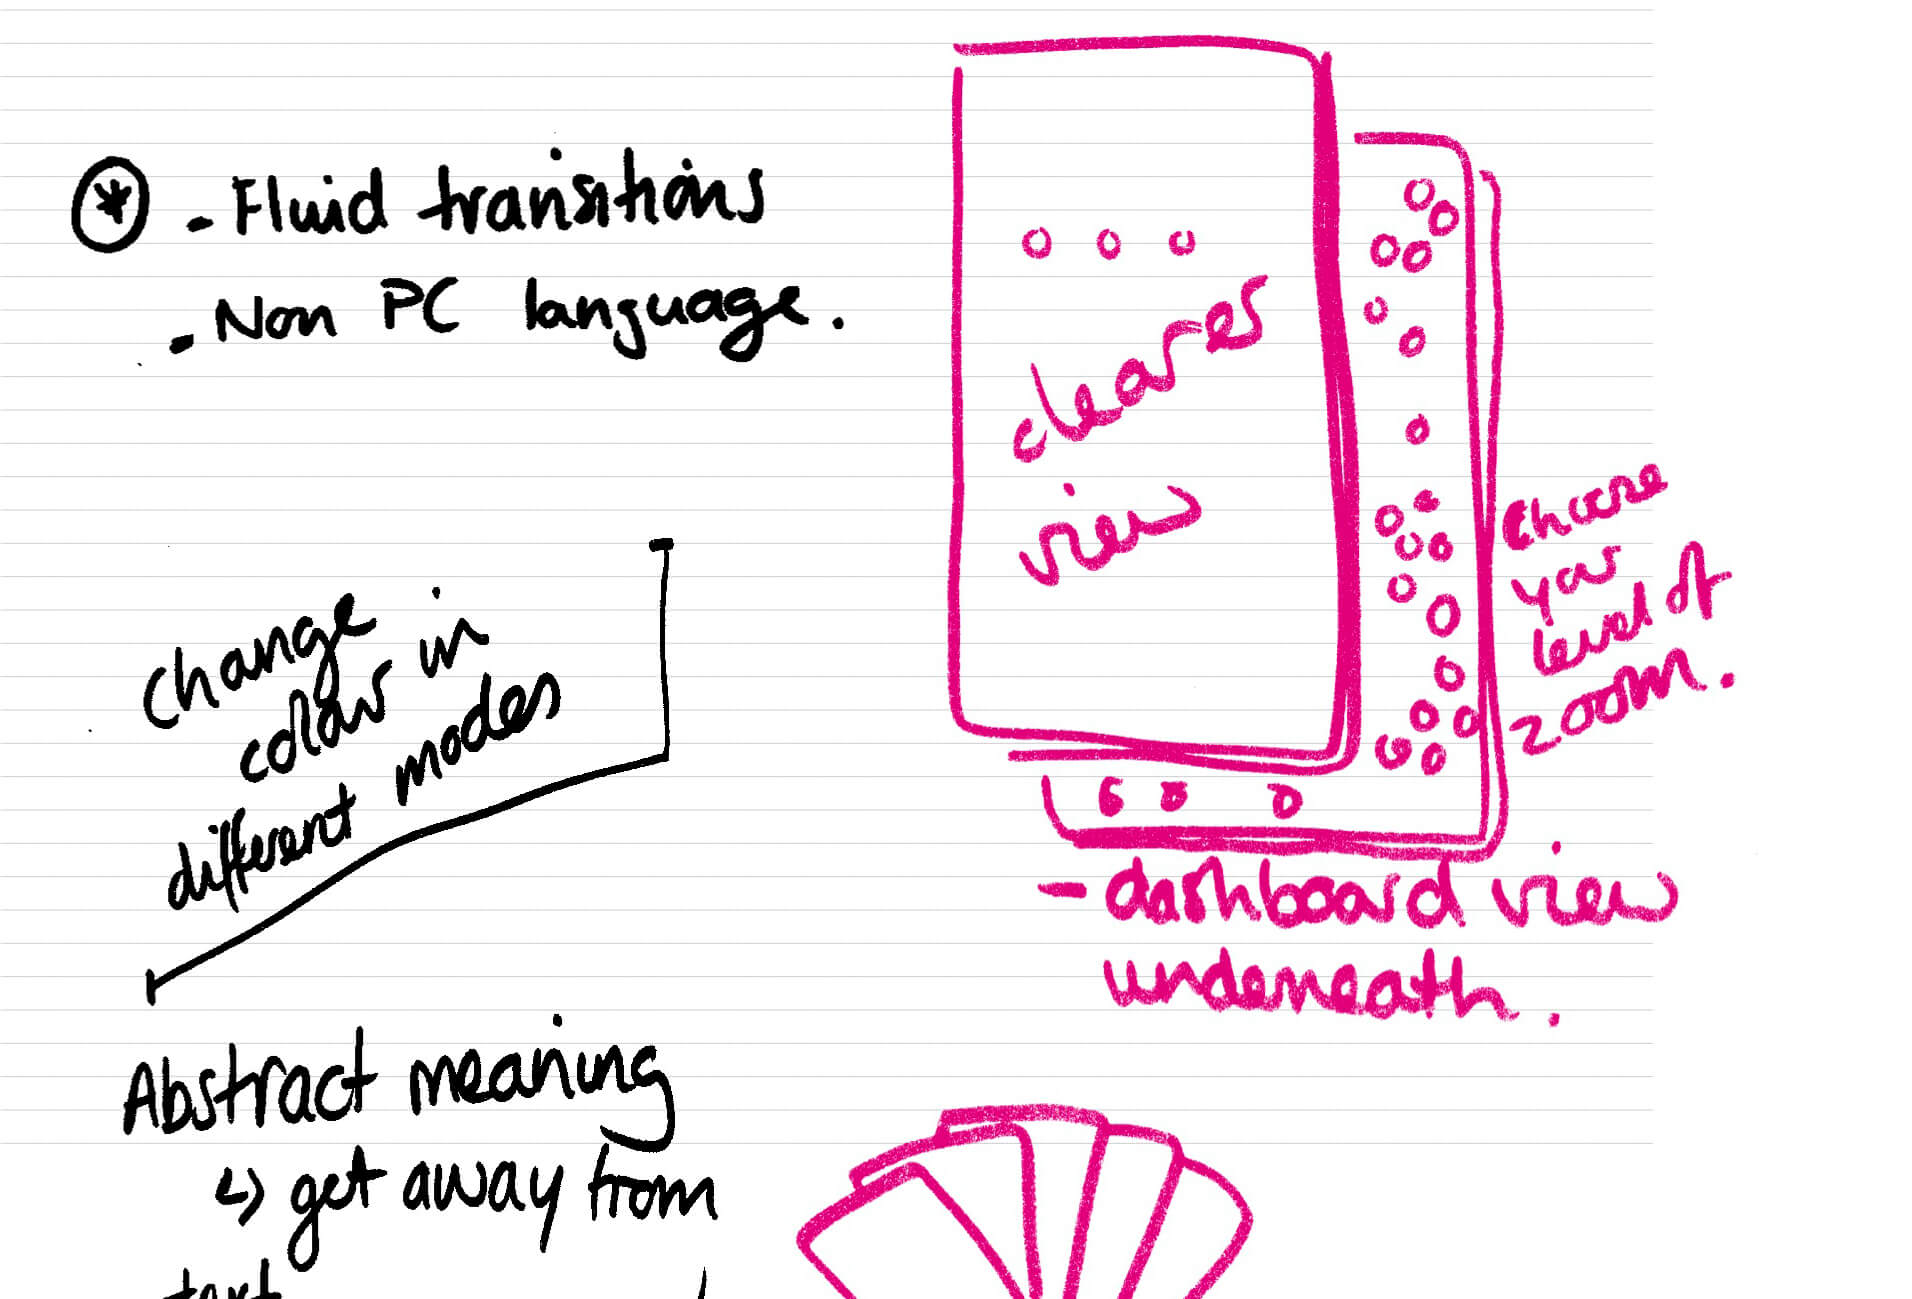 - Fluid transitions
- Non PC language.
Change
colour in
different modes
Abstract meaning
↳ get away from
text
cleares
view
Choose
your
level of
zoom.
- dashboard view
underneath.